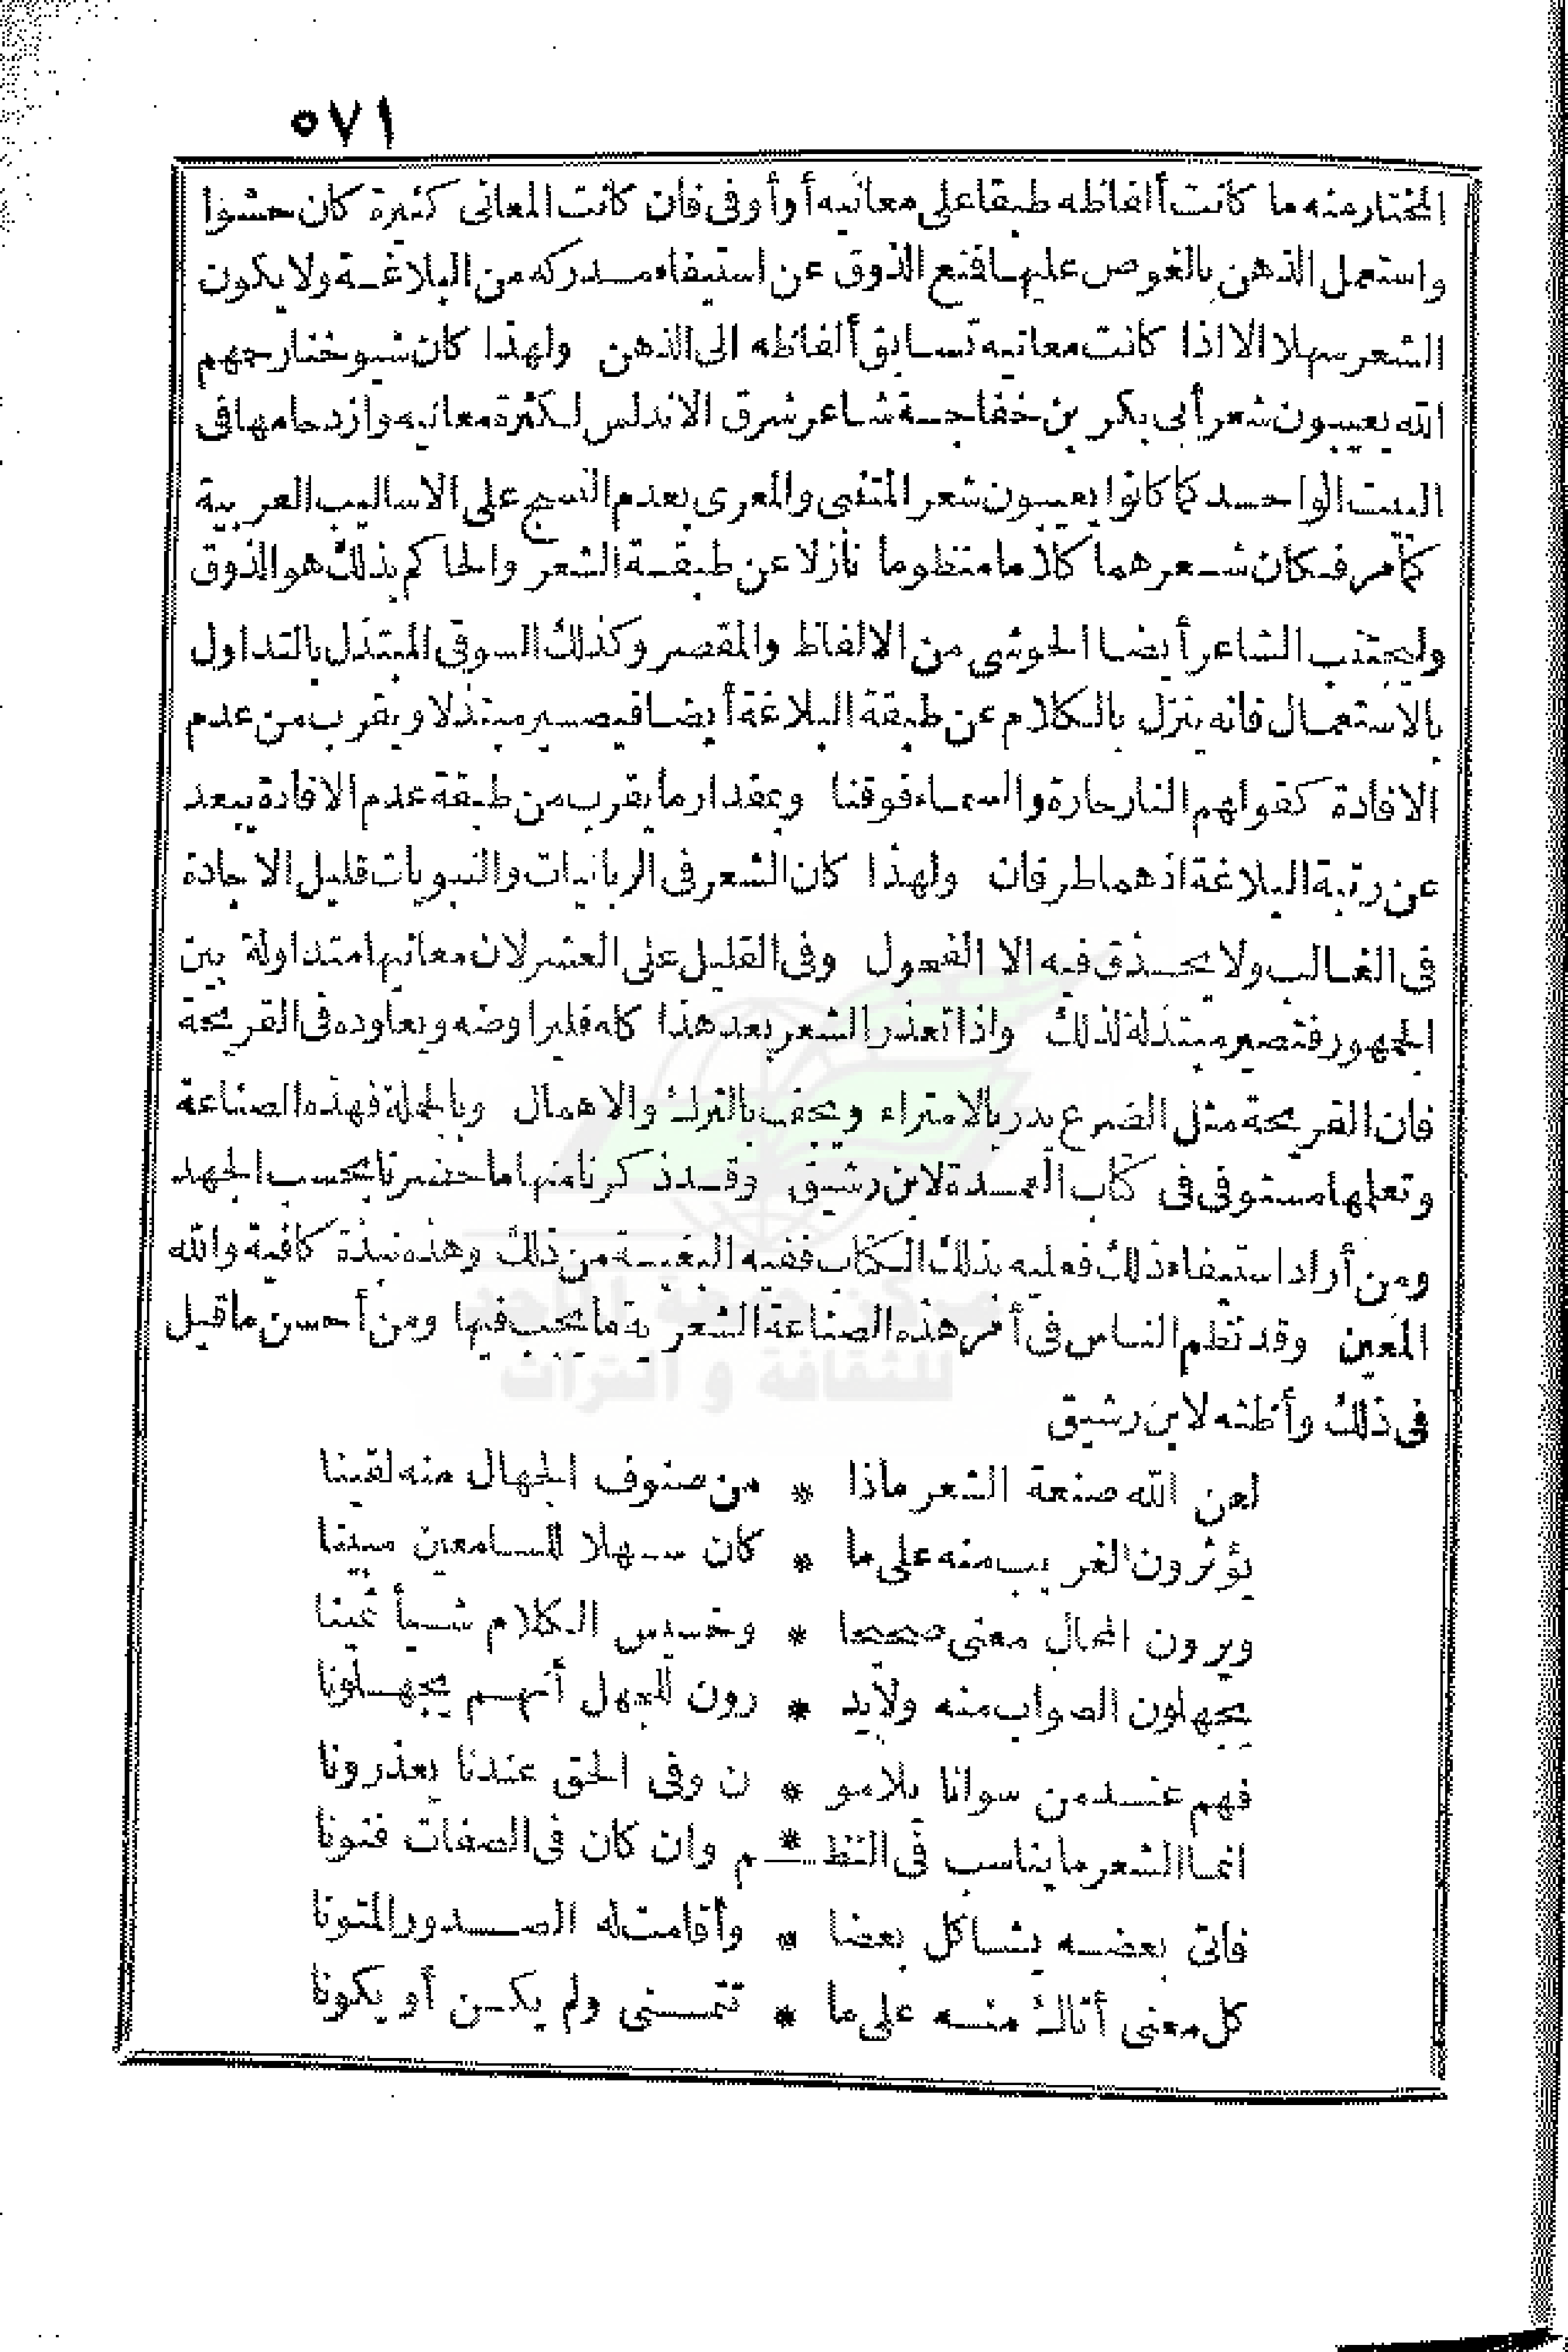 ٥٧١
المختار منه ما كانت ألفاظه طبقا على معانيه أو أوفى فان كانت المعانى كثيرة كان حشوا
واستعمل الذهن بالغوص عليها فتع الذوق عن استيفاء مدركه من البلاغة ولا يكون
الشعر سهلا الا اذا كانت معانيه تسابق ألفاظه الى الذهن ولهذا كان شيوخنا رحمهم
الله يعيبون شعر أبى بكر بن خفاجة شاعر شرق الاندلس لكثرة معانيه وازدحامها فى
البيت الواحد كما كانوا يعيبون شعر المتنبى والمعرى بعدم النسج على الاساليب العربية
كما مر فكان شعرهما كلاما منظوما نازلا عن طبقة الشعر والحاكم بذلك هو الذوق
وليجتنب الشاعر أيضا الحوشى من الالفاظ والمقصر وكذلك السوقى المبتذل بالتداول
بالاستعمال فانه ينزل بالكلام عن طبقة البلاغة أيضا فيصير مبتذلا ويقرب من عدم
الافادة كقولهم النار حارة والسماء فوقنا وبمقدار ما يقرب من طبقة عدم الافادة يبعد
عن رتبة البلاغة اذ هما طرفان ولهذا كان الشعر فى الربانيات والنبويات قليل الاجادة
فى الغالب ولا يحذق فيه الا الفحول وفى القليل على العشر لان معانيها متداولة بين
الجمهور فتصير مبتذلة لذلك واذا تعذر الشعر بعد هذا كله فليراوضه ويعاوده فى القريحة
فان القريحة مثل الضرع يدر بالامتراء ويجف بالترك والاهمال وبالجملة فهذه الصناعة
وتعلمها مستوفى فى كتاب العمدة لابن رشيق وقد ذكرنا منها ما حضرنا بحسب الجهد
ومن أراد استيفاء ذلك فعليه بذلك الكتاب ففيه البغية من ذلك وهذه نبذة كافية والله
المعين وقد نظم الناس فى أمر هذه الصناعة الشعرية ما يجب فيها ومن أحسن ما قيل
فى ذلك وأظنه لابن رشيق
لعن الله صنعة الشعر ماذا * من صنوف الجهال منه لقينا
يؤثرون الغريب منه على ما * كان سهلا للسامعين مبينا
ويرون المحال معنى صحيحا * وخسيس الكلام شيأ ثمينا
يجهلون الصواب منه ولا يد * رون للجهل أنهم يجهلونا
فهم عند من سوانا يلامو * ن وفى الحق عندنا يعذرونا
انما الشعر ما يناسب فى النظ * م وان كان فى الصفات فنونا
فاتى بعضه يشاكل بعضا * وأقامت له الصدور المتونا
كل معنى أتاك منه على ما * تتمنى ولم يكن أو يكونا
مركز جمعة الماجد
للثقافة و التراث